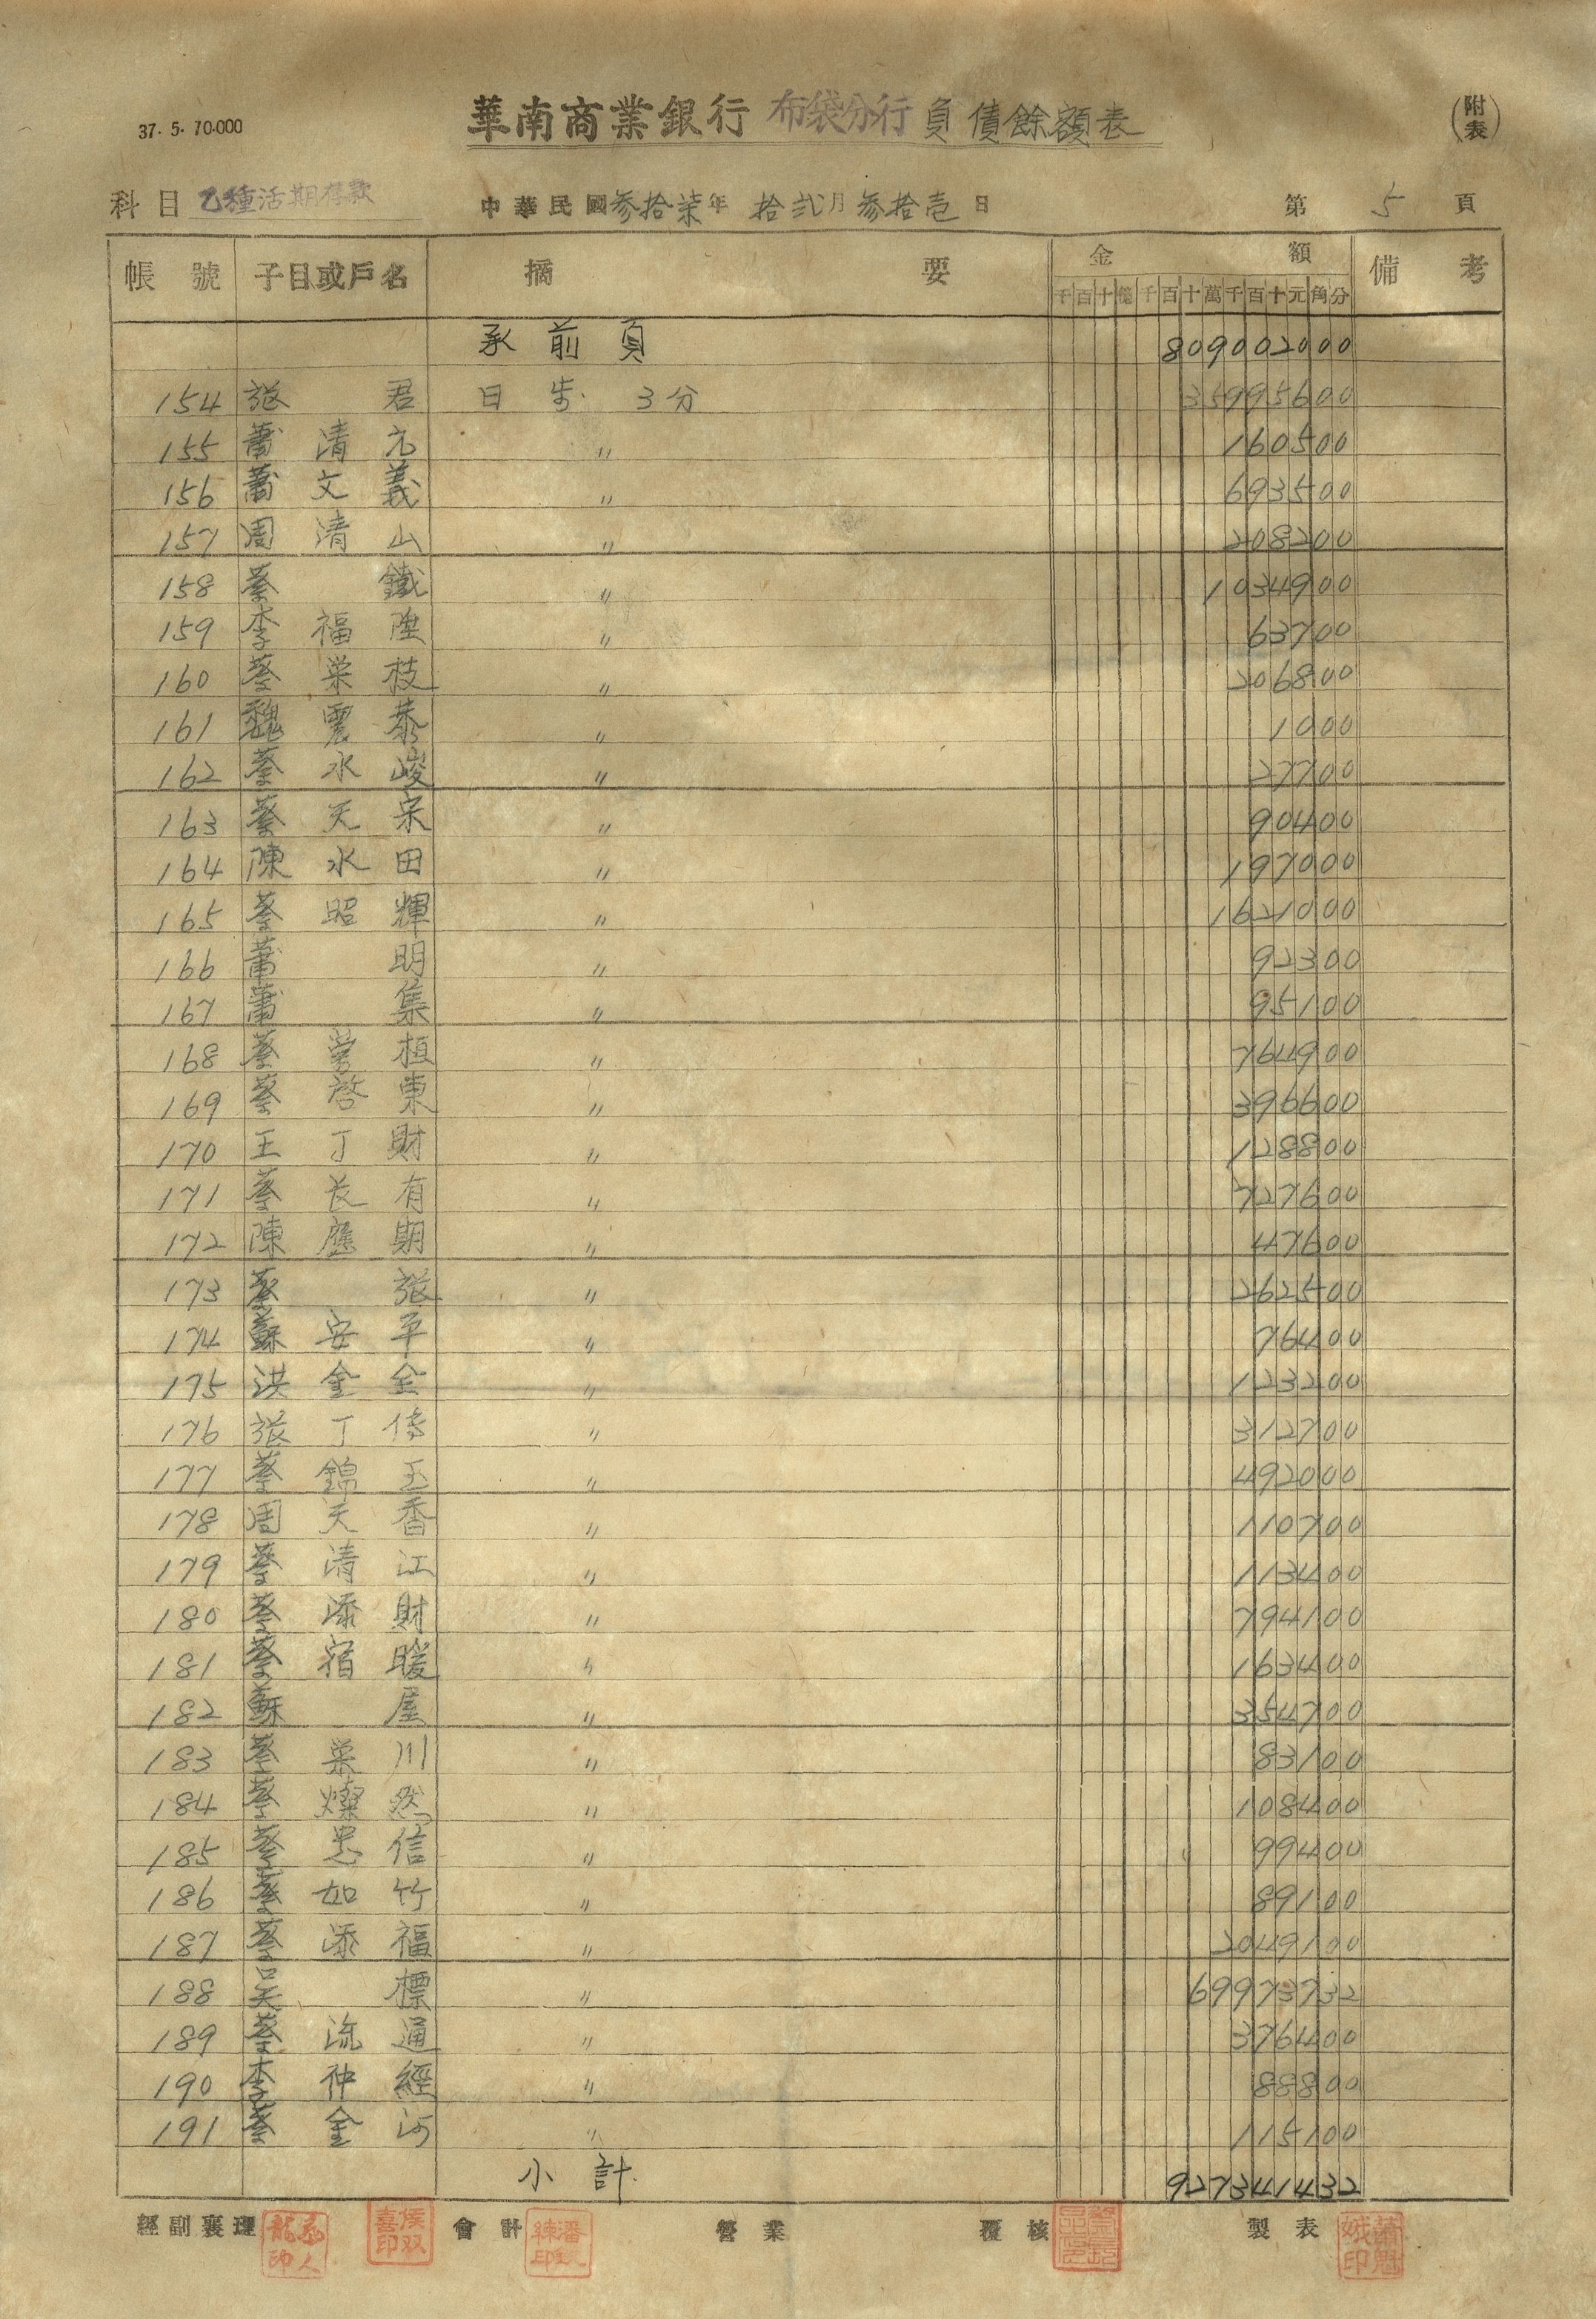 37. 5. 70.000
華南商業銀行 布袋分行 負債餘額表
(附表)
科目 乙種活期存款 中華民國參拾柒年 拾弍月 參拾壱日 第 5 頁
帳號 子目或戶名 摘要 金額 備考
千百十億千百十萬千百十元角分
承前頁 809002000
154 張 君 日歩 3分 35995600
155 蕭清元 〃 160500
156 蕭文義 〃 693500
157 周清山 〃 208200
158 蔡 鐵 〃 1034900
159 李福陞 〃 63700
160 蔡栄枝 〃 206800
161 魏震泰 〃 1000
162 蔡水峻 〃 27700
163 蔡天宗 〃 90400
164 陳水田 〃 197000
165 蔡昭輝 〃 1621000
166 蕭 明 〃 92300
167 蕭 集 〃 95100
168 蔡 植 〃 764900
169 蔡啓東 〃 396600
170 王丁財 〃 128800
171 蔡長有 〃 727600
172 陳應期 〃 47600
173 蔡 張 〃 262500
174 蘇安平 〃 76400
175 洪金全 〃 123200
176 張丁 〃 312700
177 蔡錦玉 〃 492000
178 周天香 〃 110700
179 蔡清江 〃 113400
180 蔡添財 〃 794100
181 蔡宿暖 〃 163400
182 蘇 屋 〃 354700
183 蔡栄川 〃 83100
184 蔡燦然 〃 108400
185 蔡忠信 〃 99400
186 蔡如竹 〃 89100
187 蔡添福 〃 2049100
188 吴 標 〃 69973732
189 蔡流通 〃 376400
190 李仲經 〃 88800
191 蔡金河 〃 115100
小計 927341432
經副襄理 會計 營業 覆核 製表